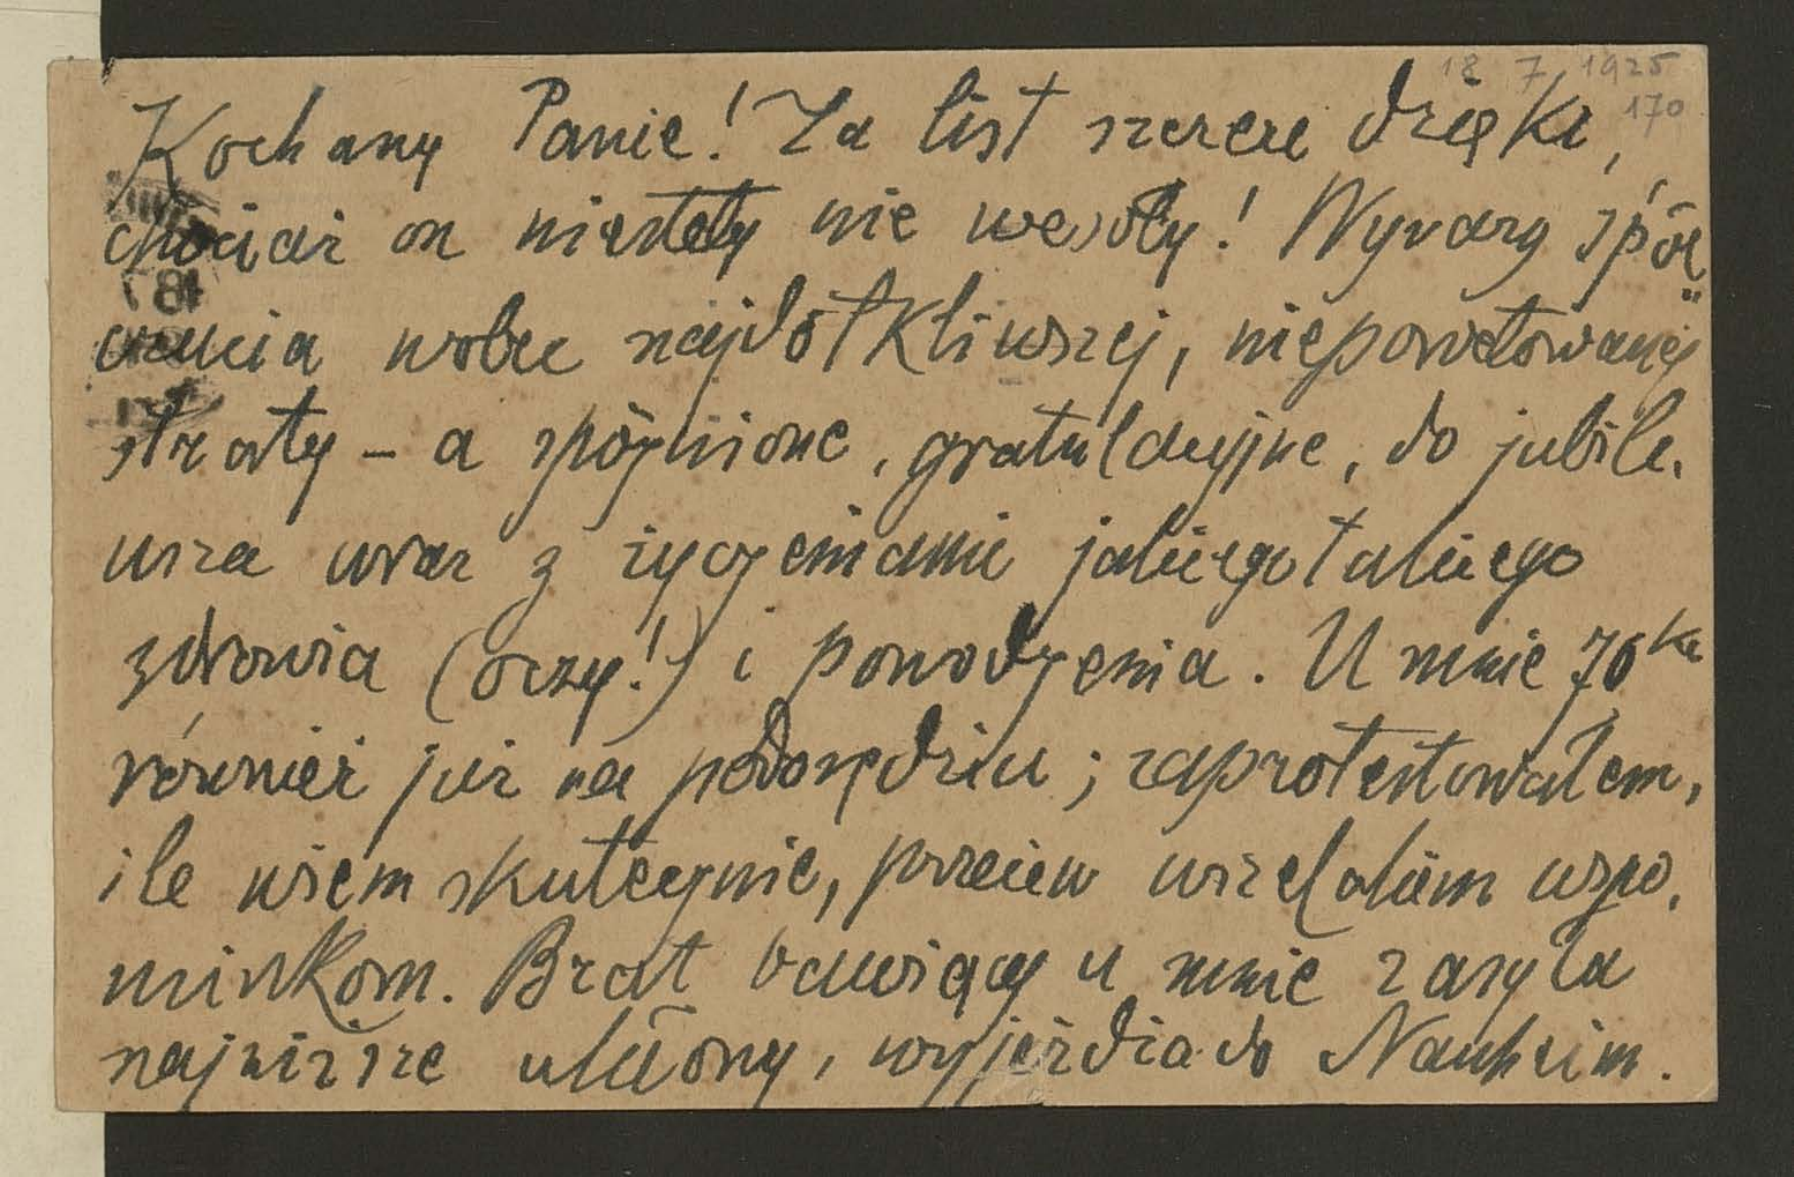 18 7 1925
170
Kochany Panie! Za list szczere dzięki,
chociaż on niestety nie wesoły! Wyrazy spół„
czucia wobec najdotkliwszej, niepowetowanej
straty – a spóźnione, gratulacyjne, do jubile.
usza wraz z życzeniami jakiegotakiego
zdrowia (oczy!) i powodzenia. U mnie 70ka
również już na podorędziu; zaprotestowałem,
ile wiem skutecznie, przeciw wszelakim wspo.
minkom. Brat bawiący u mnie zasyła
najniższe ukłony, wyjeżdża do Nauheim.